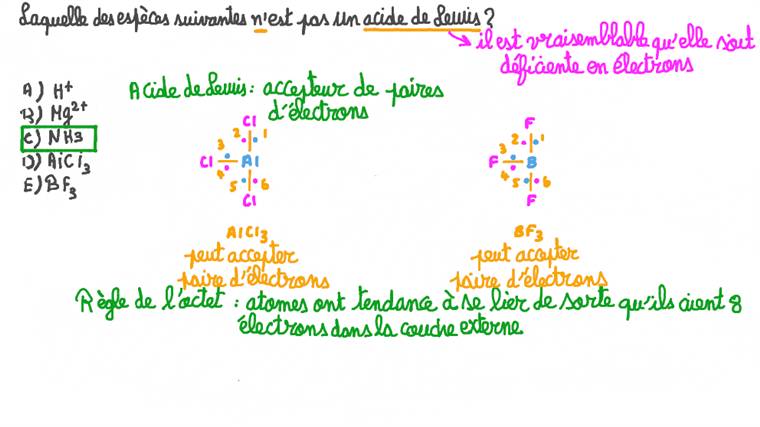 Laquelle des espèces suivantes n'est pas un acide de Lewis ?
il est vraisemblable qu'elle soit
déficiente en électrons
A) H+
B) Mg2+
C) NH3
D) AlCl3
E) BF3
Acide de Lewis : accepteur de paires
d'électrons
Cl
2 1
3
Cl Al
4
5 6
Cl
AlCl3
peut accepter
paire d'électrons
F
2 1
3
F B
4
5 6
F
BF3
peut accepter
paire d'électrons
Règle de l'octet : atomes ont tendance à se lier de sorte qu'ils aient 8
électrons dans la couche externe.